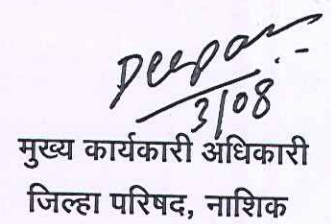 3/08
मुख्य कार्यकारी अधिकारी
जिल्हा परिषद, नाशिक